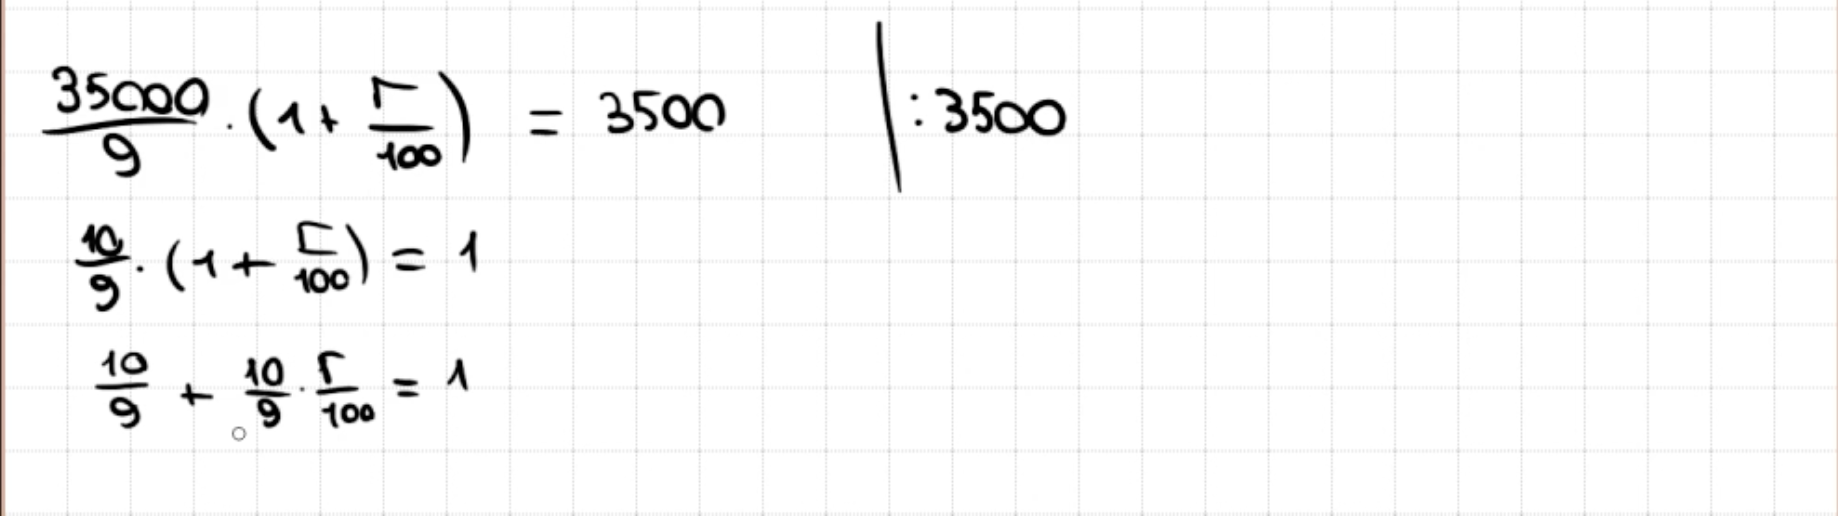 35000/9 · (1 + r/100) = 3500 | : 3500
10/9 · (1 + r/100) = 1
10/9 + 10/9 · r/100 = 1